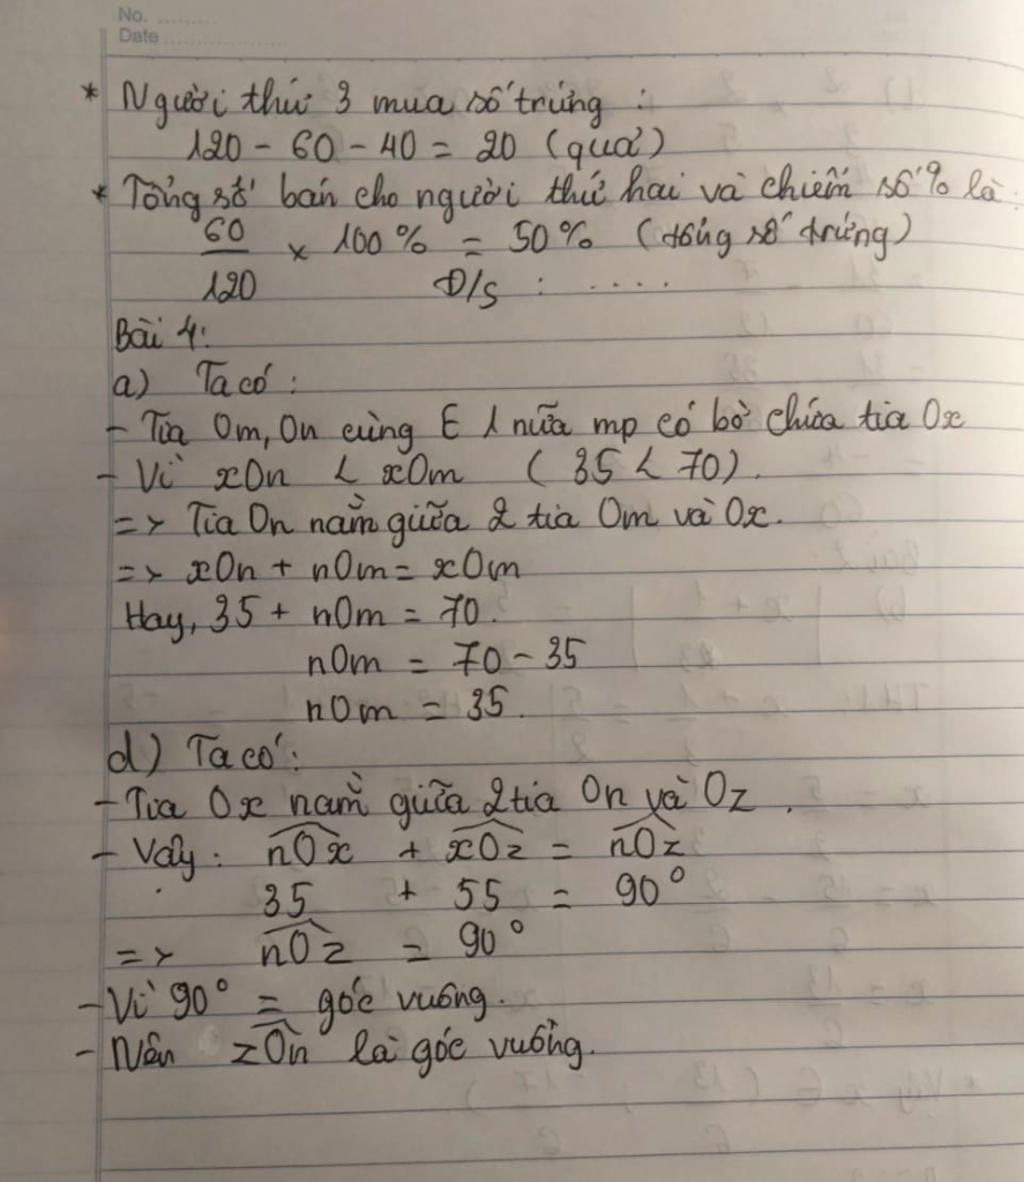 No. ..........
Date ......................
* Người thứ 3 mua số trứng :
120 - 60 - 40 = 20 (quả)
* Tổng số bán cho người thứ hai và chiếm số % là :
60
120 × 100 % = 50 % (tổng số trứng)
Đ/S : .....
Bài 4:
a) Ta có :
- Tia Om, On cùng E 1 nữa mp có bờ chứa tia Ox
- Vì xOn < xOm (35 < 70).
=> Tia On nằm giữa 2 tia Om và Ox.
=> xOn + nOm = xOm
Hay, 35 + nOm = 70.
nOm = 70 - 35
nOm = 35.
d) Ta có :
- Tia Ox nằm giữa 2 tia On và Oz .
- Vậy : nOx + xOz = nOz
35 + 55 = 90°
=> nOz = 90°
- Vì 90° = góc vuông.
- Nên zOn là góc vuông.